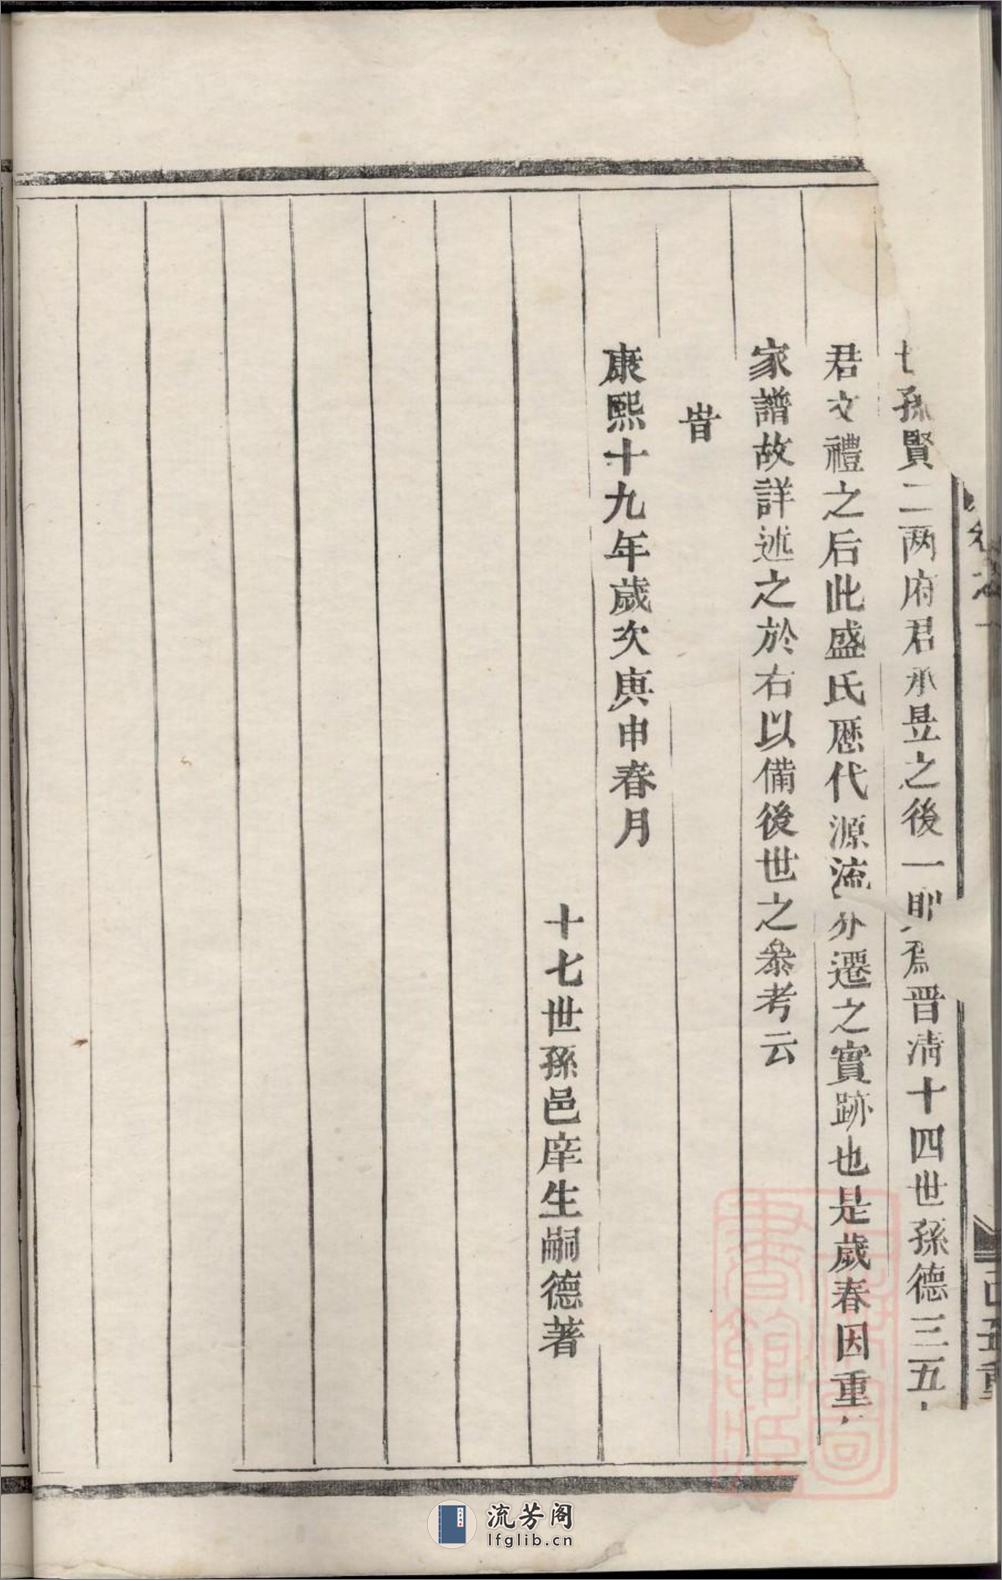 孫賢二两府君承昱之後一耶爲晋清十四世孫德三五
君文禮之后此盛氏厯代源流分遷之實跡也是歲春因重
家譜故詳述之於右以備後世之叅考云
旹
康熙十九年歲次庚申春月
十七世孫邑庠生嗣德著
流芳阁
lfglib.cn